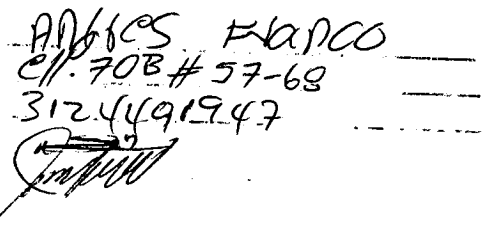 Franco
Cll. 70B # 57-68
3124491947